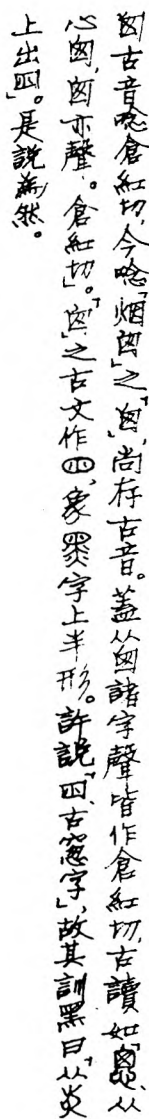 囱古音唸倉紅切，今唸「烟囱」之「囱」，尚存古音。蓋从囱諸字聲皆作倉紅切，古讀如「悤，从
心囱，囱亦聲。倉紅切」。「囱」之古文作𡆧，象罞字上半形。許說「𡆧，古窻字」，故其訓黑曰「从炎
上出𡆧」。是說為然。